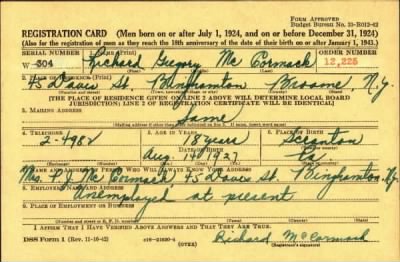 FORM APPROVED
Budget Bureau No. 33-R012-42
REGISTRATION CARD (Men born on or after July 1, 1924, and on or before December 31, 1924)
(Also for the registration of men as they reach the 18th anniversary of the date of their birth on or after January 1, 1943.)
SERIAL NUMBER 1. NAME (Print) ORDER NUMBER
W-304 Richard Gregory Mc Cormack 12,225
2. PLACE OF RESIDENCE (Print)
45 Davis St. Binghamton Broome, N.Y.
[THE PLACE OF RESIDENCE GIVEN ON LINE 2 ABOVE WILL DETERMINE LOCAL BOARD
JURISDICTION; LINE 2 OF REGISTRATION CERTIFICATE WILL BE IDENTICAL]
3. MAILING ADDRESS
Same
4. TELEPHONE 5. AGE IN YEARS 6. PLACE OF BIRTH
2-4982 18 years Scranton
DATE OF BIRTH
Aug. 14 1927 Pa.
Mrs. P. J. Mc Cormack 45 Davis St. Binghamton, N.Y.
8. EMPLOYER'S NAME AND ADDRESS
Unemployed at present
9. PLACE OF EMPLOYMENT OR BUSINESS
I AFFIRM THAT I HAVE VERIFIED ABOVE ANSWERS AND THAT THEY ARE TRUE.
DSS Form 1 (Rev. 11-16-42) (OVER)
Richard McCormack